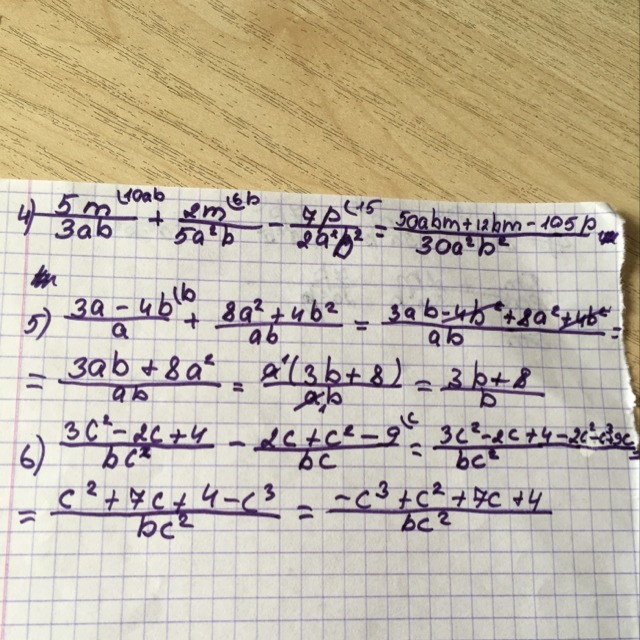 4) 5m(10ab/3ab + 2m(6b/5a²b - 7p(15/2a²b² = 50abm+12bm-105p/30a²b²
5) 3a-4b(b/a + 8a²+4b²/ab = 3ab-4b²+8a²+4b²/ab =
= 3ab+8a²/ab = a¹(3b+8)/a₁b = 3b+8/b
6) 3c²-2c+4/bc² - 2c+c²-9(c/bc = 3c²-2c+4-2c²-c³+9c/bc²
= c²+7c+4-c³/bc² = -c³+c²+7c+4/bc²